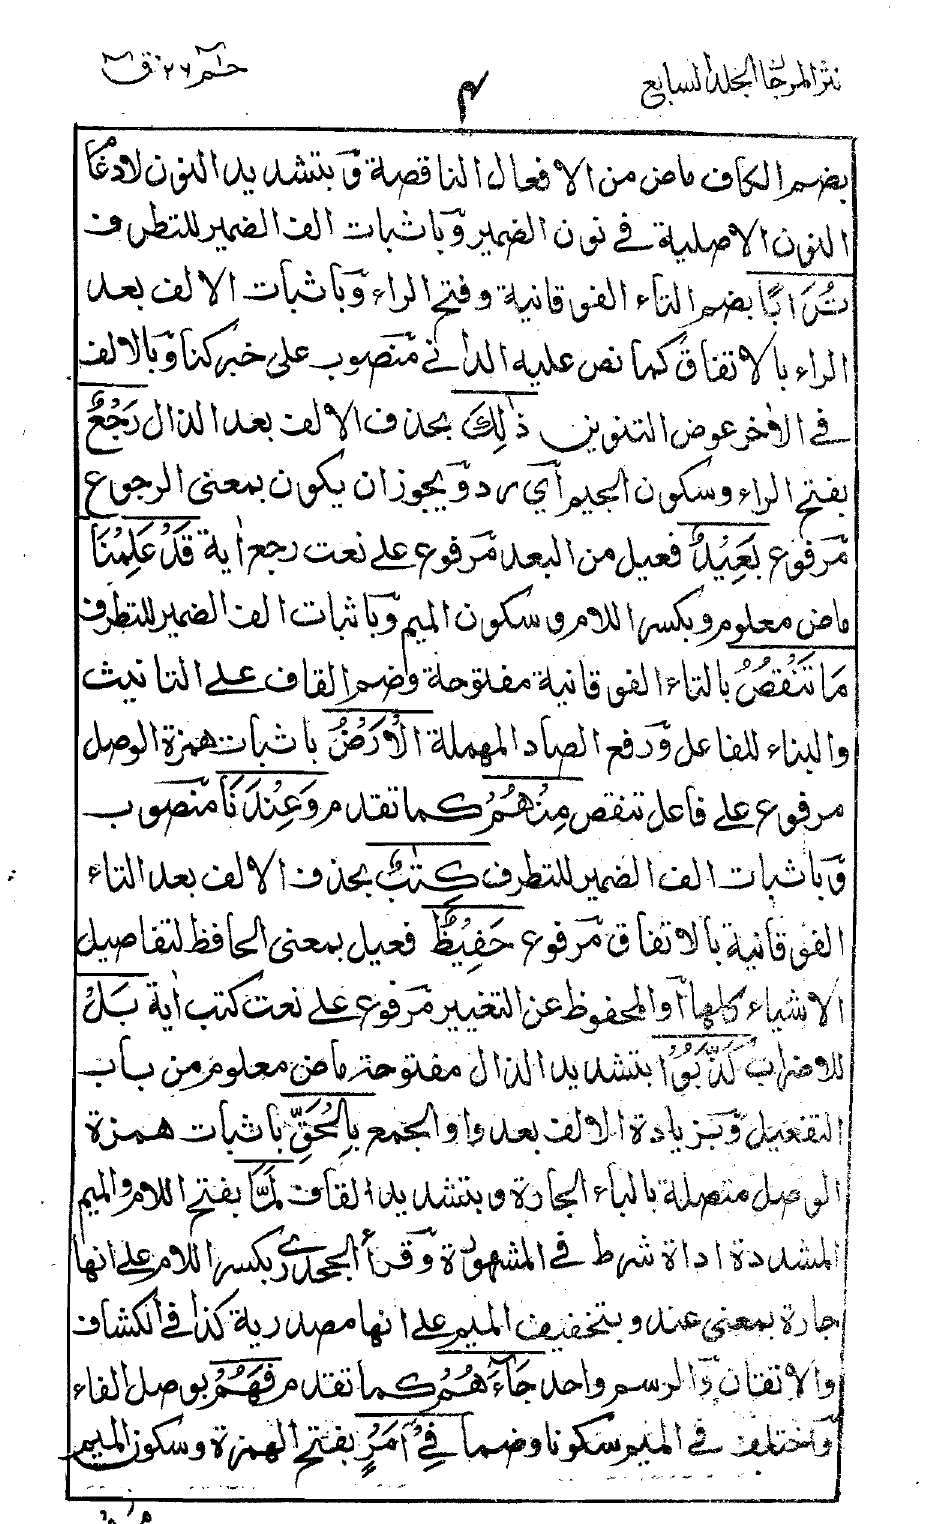 نثر المرجان الجلد السابع
٤
حٰم ٢٦ ق
بضم الكاف ماض من الافعال الناقصة وَبتشديد النون لادغام
النون الاصلية في نون الضمير وَباثبات الف الضمير للتطرف
تُرَابًا بضم التاء الفوقانية وفتح الراء وَباثبات الالف بعد
الراء بالاتفاق كما نص عليه الداني مَنصوب على خبر كنا وَبالالف
في الاٰخر عوض التنوين ذٰلِكَ بحذف الالف بعد الذال رَجْعٌ
بفتح الراء وسكون الجيم اَي رد وَيجوز ان يكون بمعنى الرجوع
مَرفوع بَعِيْدٌ فعيل من البعد مَرفوع على نعت رجع اٰية قَدْ عَلِمْنَا
ماض معلوم وبكسر اللام وسكون الميم وَباثبات الف الضمير للتطرف
مَا تَنْقُصُ بالتاء الفوقانية مفتوحة وضم القاف على التانيث
والبناء للفاعل وَرفع الصاد المهملة الْاَرْضُ باثبات همزة الوصل
مرفوع على فاعل تنقص مِنْهُمْ كما تقدم وَعِنْدَنَا مَنصوب
وَباثبات الف الضمير للتطرف كِتٰبٌ بحذف الالف بعد التاء
الفوقانية بالاتفاق مَرفوع حَفِيْظٌ فعيل بمعنى الحافظ لتفاصيل
الاشياء كلها اَو المحفوظ عن التغيير مَرفوع على نعت كتب اٰية بَلْ
للاضراب كَذَّبُوْا بتشديد الذال مفتوحة ماض معلوم من باب
التفعيل وَبزيادة الالف بعد واو الجمع بِالْحَقِّ باثبات همزة
الوصل متصلة بالباء الجارة وبتشديد القاف لَمَّا بفتح اللام والميم
المشددة اداة شرط في المشهورة وَقرأ الجحدري بكسر اللام على انها
جارة بمعنى عند وبتخفيف الميم على انها مصدرية كذا في الكشاف
والاتقان وَالرسم واحد جَاۤءَهُمْ كما تقدم فَهُمْ بوصل الفاء
وَاختلف في الميم سكونا وضما فِيْۤ اَمْرٍ بفتح الهمزة وسكون الميم